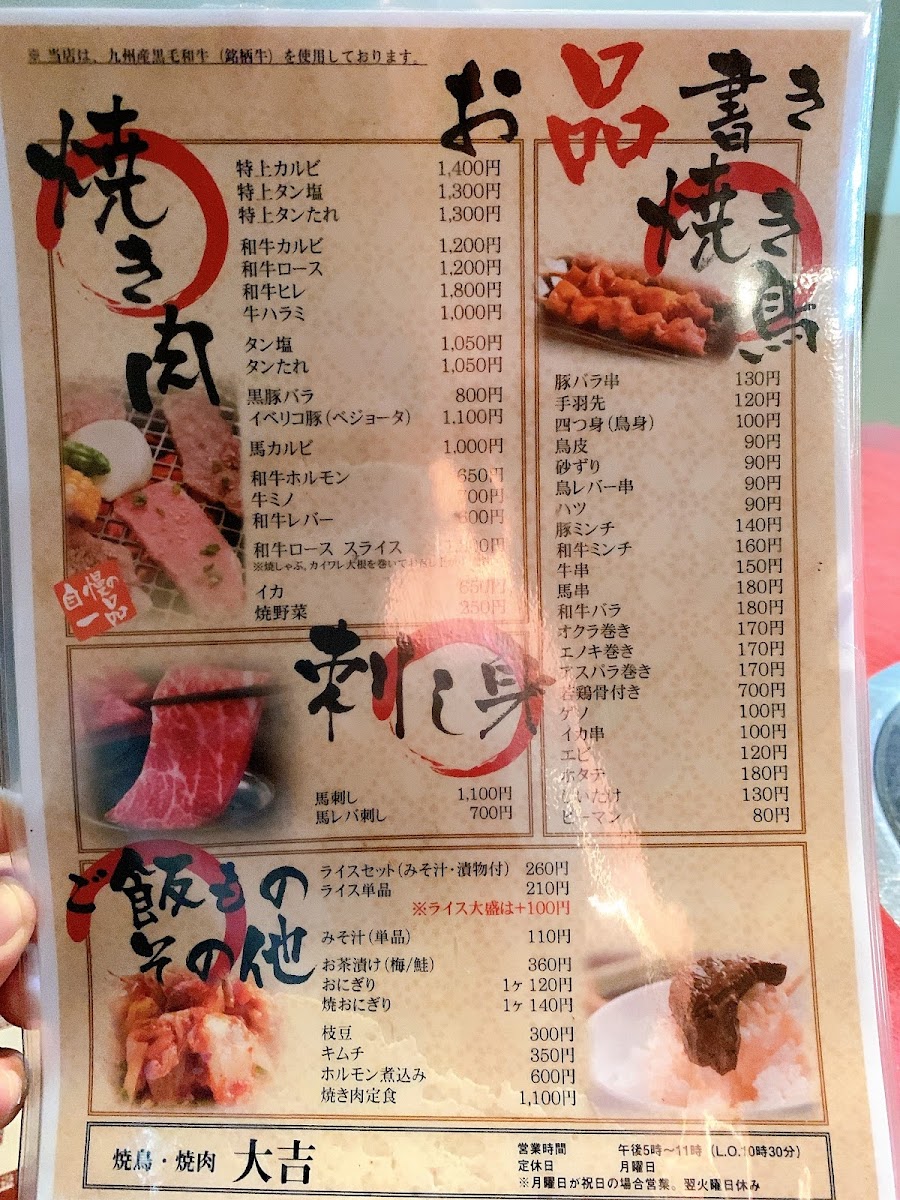 ※ 当店は、九州産黒毛和牛(銘柄牛)を使用しております。
お品書き
焼き肉
特上カルビ 1,400円
特上タン塩 1,300円
特上タンたれ 1,300円
和牛カルビ 1,200円
和牛ロース 1,200円
和牛ヒレ 1,800円
牛ハラミ 1,000円
タン塩 1,050円
タンたれ 1,050円
黒豚バラ 800円
イベリコ豚(ベジョータ) 1,100円
馬カルビ 1,000円
和牛ホルモン 650円
牛ミノ 700円
和牛レバー 600円
和牛ロース スライス
※焼しゃぶ。カイワレ大根を巻いて
イカ 650円
焼野菜 350円
自慢の一品
焼き鳥
豚バラ串 130円
手羽先 120円
四つ身(鳥身) 100円
鳥皮 90円
砂ずり 90円
鳥レバー串 90円
ハツ 90円
豚ミンチ 140円
和牛ミンチ 160円
牛串 150円
馬串 180円
和牛バラ 180円
オクラ巻き 170円
エノキ巻き 170円
アスパラ巻き 170円
若鶏骨付き 700円
ゲソ 100円
イカ串 100円
エビ 120円
ホタテ 180円
しいたけ 130円
ピーマン 80円
刺し身
馬刺し 1,100円
馬レバ刺し 700円
ご飯もの
その他
ライスセット(みそ汁・漬物付) 260円
ライス単品 210円
※ライス大盛は+100円
みそ汁(単品) 110円
お茶漬け(梅/鮭) 360円
おにぎり 1ヶ 120円
焼おにぎり 1ヶ 140円
枝豆 300円
キムチ 350円
ホルモン煮込み 600円
焼き肉定食 1,100円
焼鳥・焼肉 大吉
営業時間 午後5時～11時(L.O.10時30分)
定休日 月曜日
※月曜日が祝日の場合営業。翌火曜日休み